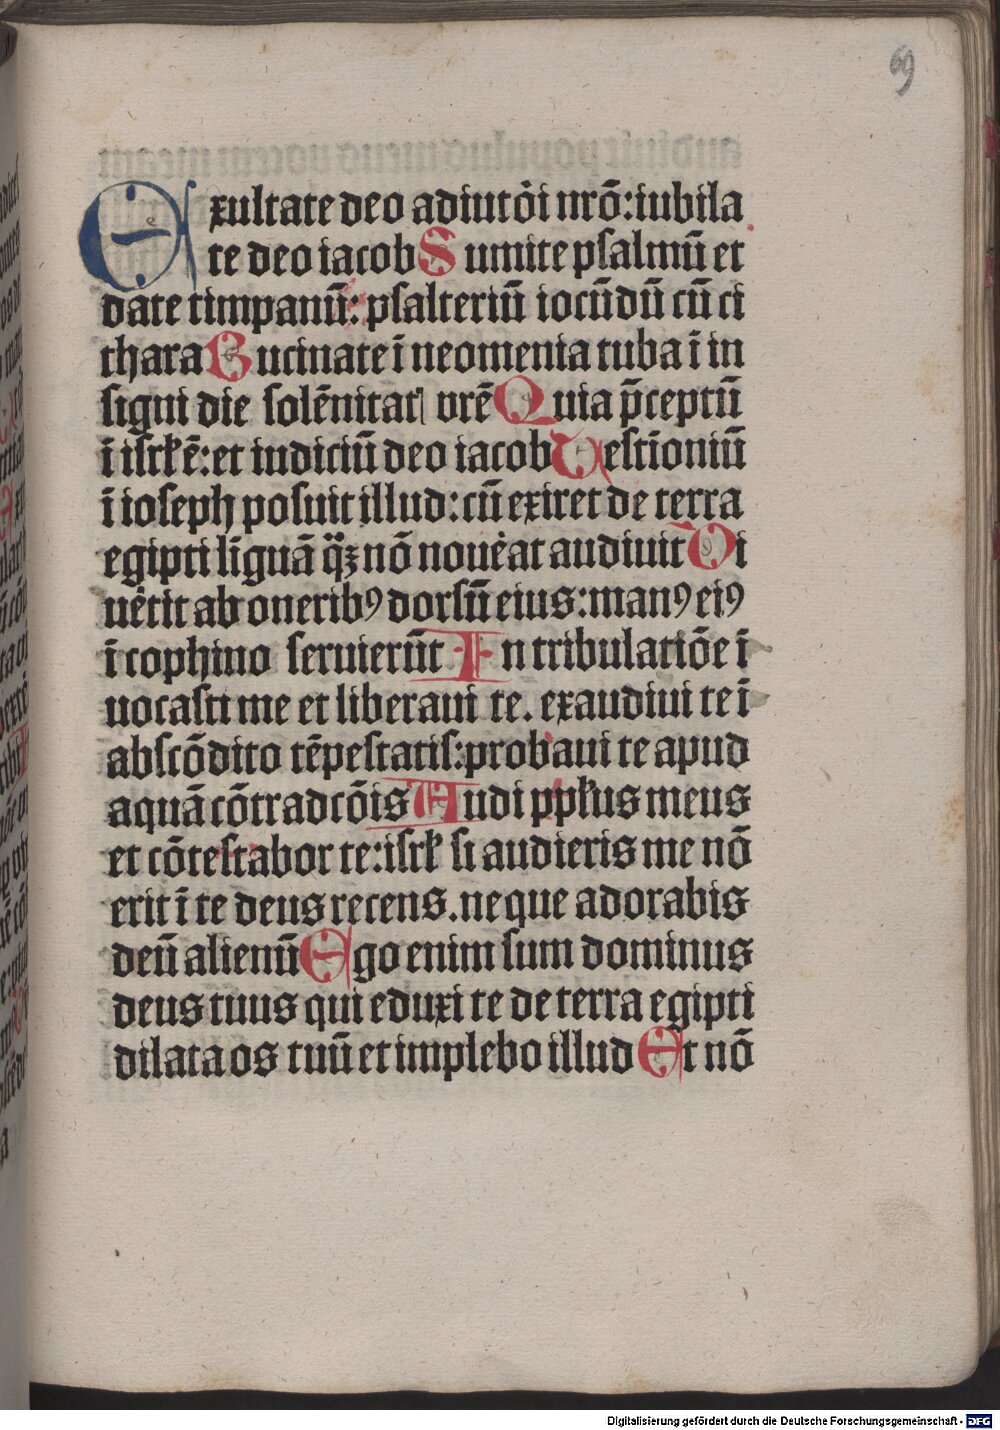 69
Exultate deo adiutōi nrō: iubila
te deo iacob Sumite psalmū et
date timpanū: psalteriū iocūdū cū ci
thara Bucinate ī neomenia tuba ī in
signi die solēnitat vrē Quia p̄ceptū
ī isrl̄ ē: et iudiciū deo iacob Testīoniū
ī ioseph posuit illud: cū exiret de terra
egipti līguā q̄ꝫ nō nouēat audiuit Di
uētit ab oneribꝰ dorsū eius: manꝰ eiꝰ
ī cophino seruierūt In tribulatiōe ī
uocasti me et liberaui te. exaudiui te ī
abscōdito tēpestatis: probaui te apud
aquā cōtradcōis Audi pplus meus
et cōtestabor te: isrl̄ si audieris me nō
erit ī te deus recens. neque adorabis
deū alienū Ego enim sum dominus
deus tuus qui eduxi te de terra egipti
dilata os tuū et implebo illud Et nō
Digitalisierung gefördert durch die Deutsche Forschungsgemeinschaft - DFG